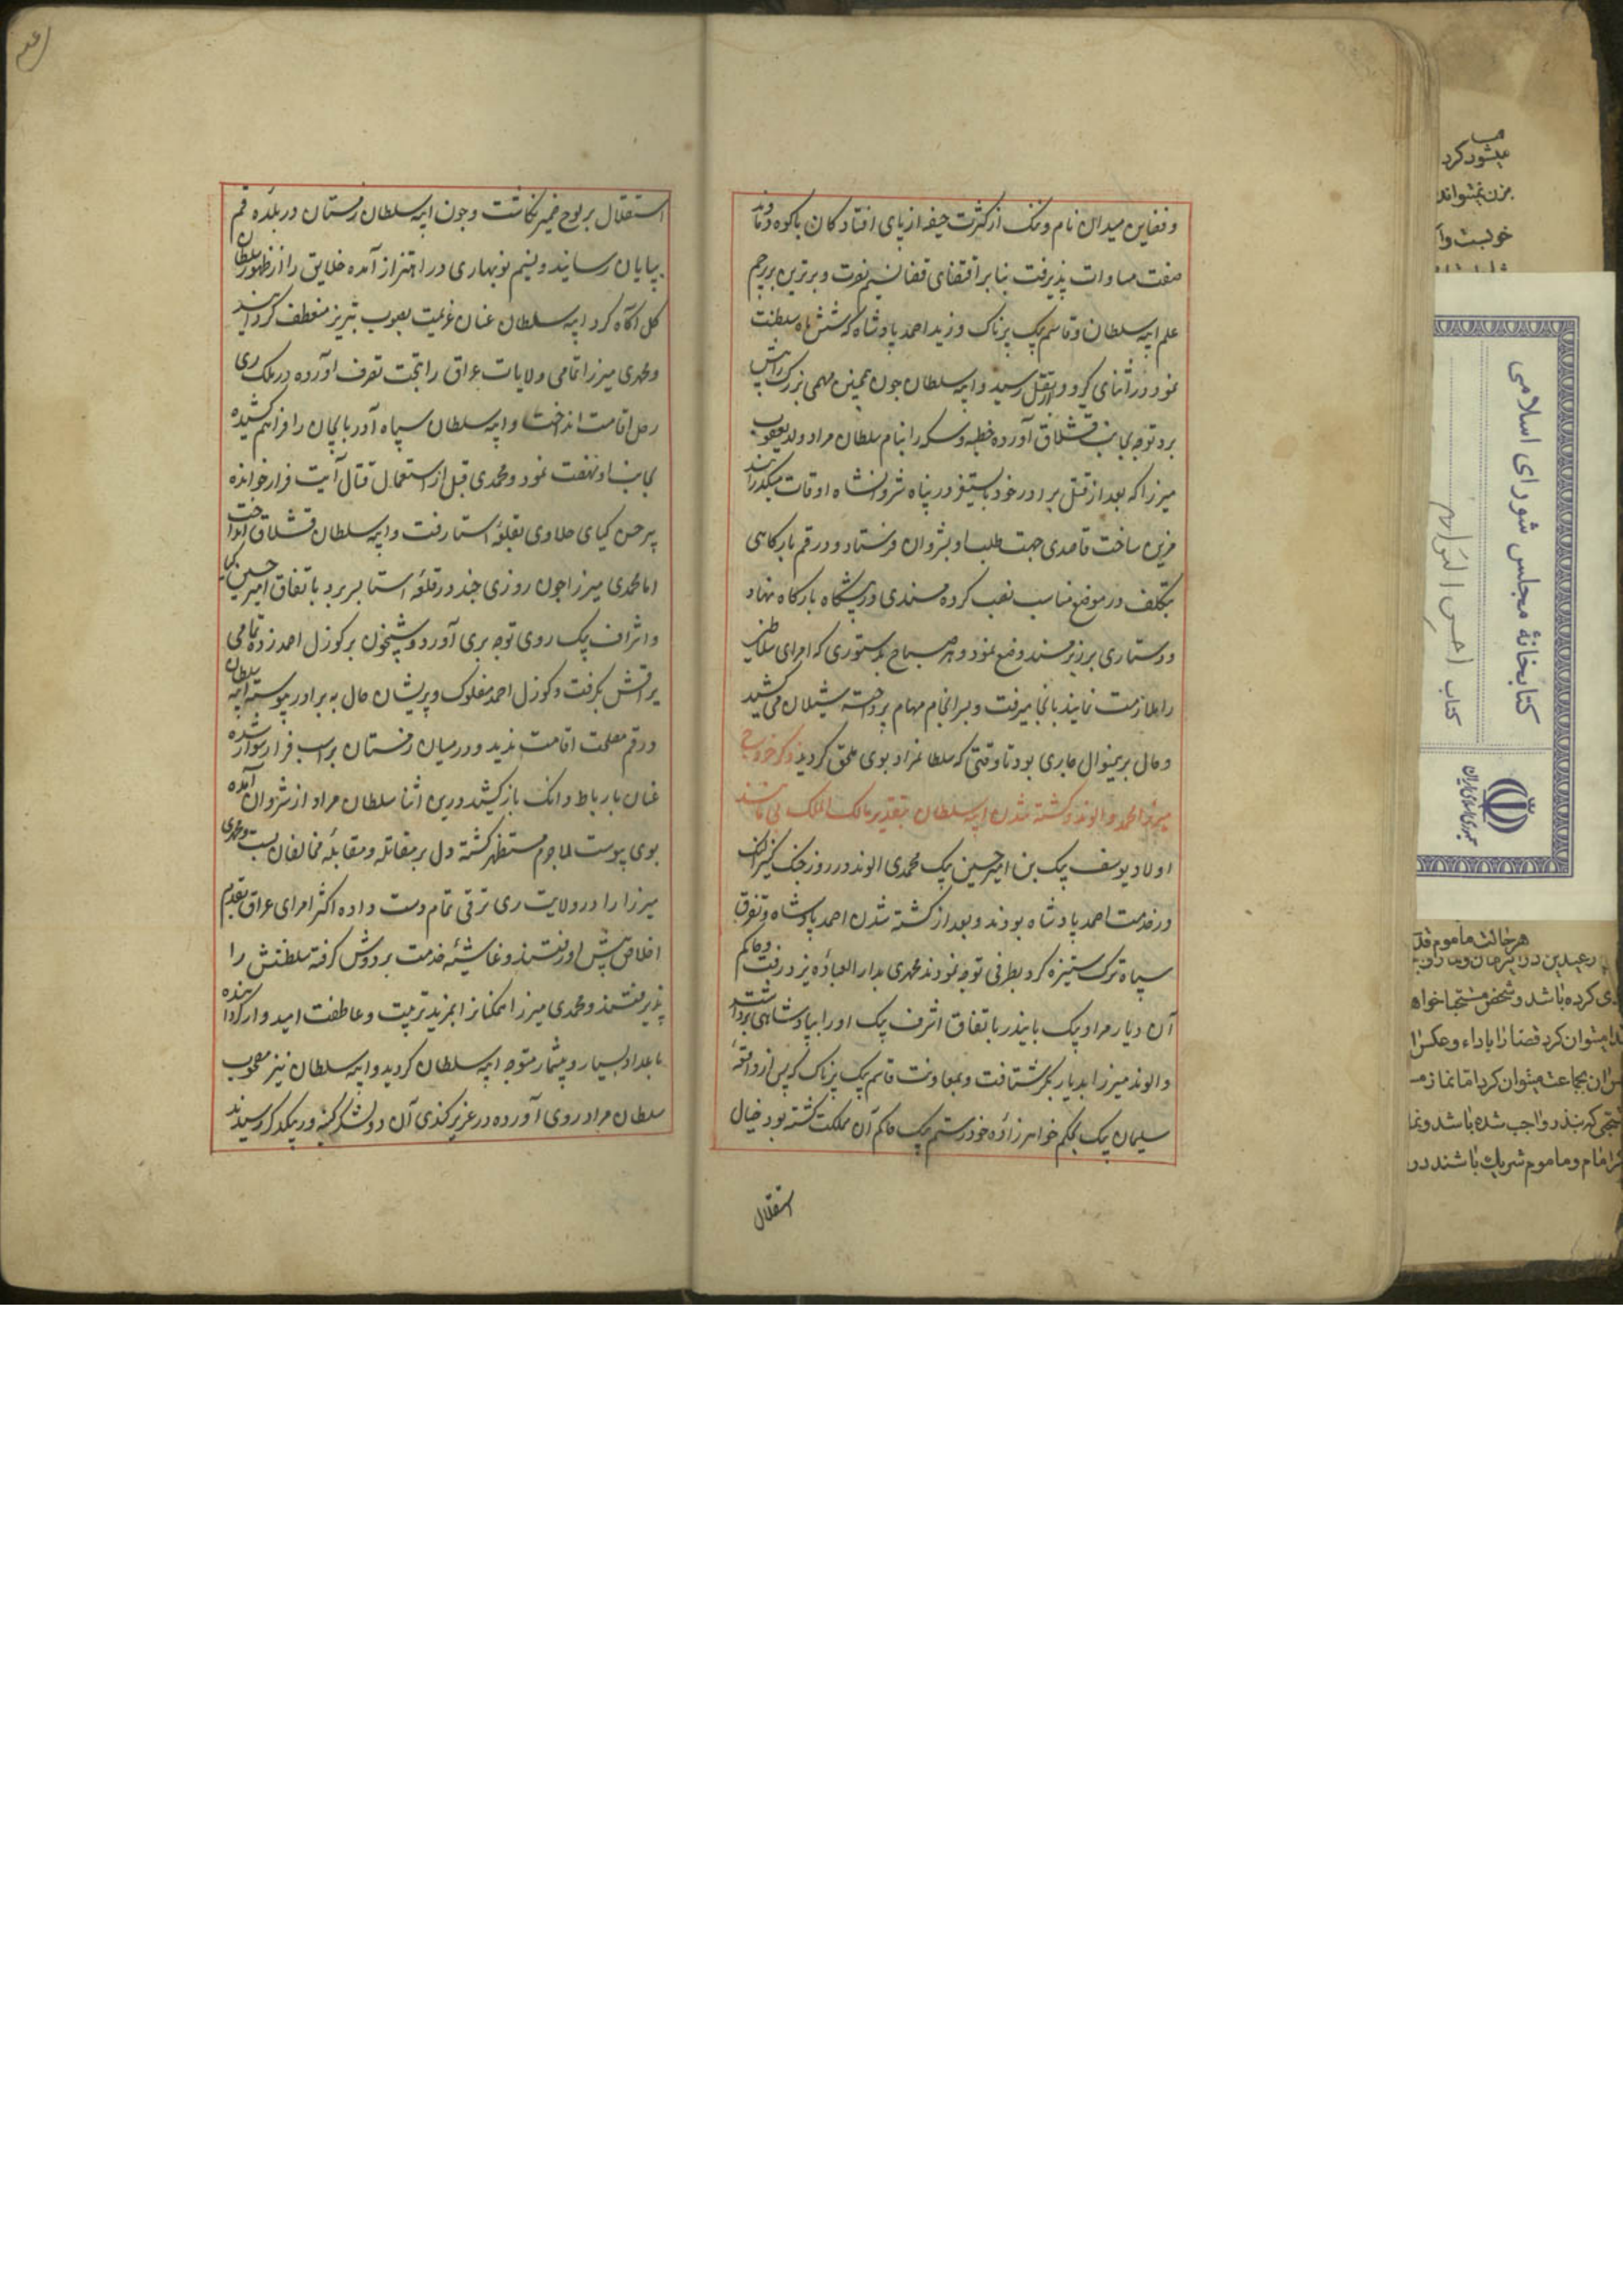 و فضاین میدان نام و ننک از کثرت جیفه از پای افتادکان باکوه دماوند
صفت مساوات پذیرفت بنابر اقتضای قضا نسیم نصرت و برترین بر پرچم
علم ایبه سلطان و قاسم بیک پرناک وزید احمد پادشاه که شش ماه سلطنت
نمود در اثنای کرو و فر بقتل رسید و ایبه سلطان چون چنین مهمی بزرک از پیش
برد توجه بجانب قشلاق آورده خطبه و سکه را بنام سلطان مراد ولد یعقوب
میرزا که بعد از قتل برادر خود بایسنغر در پناه شروانشاه اوقات میکذرانید
مزین ساخت قاصدی جهت طلب او بشروان فرستاد و در قم بارکاهی
بتکلف در موضع مناسب نصب کرده مسندی در پیشکاه بارکاه نهاد
و دستاری بر زبر مسند وضع نمود و هر صباح بدستوری که امرای سلاطین
را ملازمت نمایند بآنجا میرفت و بسرانجام مهام پرداخته شیلان می کشید
و حال برینمنوال جاری بود تا وقتی که سلطان مراد بوی ملحق کردید ذکر خروج
میرزا محمدی و الوند و کشته شدن ایبه سلطان بتقدیر مالک الملک بی مانند
اولاد یوسف بیک بن امیر حسن بیک محمدی الوند در روز جنک
در خدمت احمد پادشاه بودند و بعد از کشته شدن احمد پادشاه و تفرق
سپاه ترک ستیزه کرد بطرفی توجه نمودند محمدی بدار العباده یزد رفت و حاکم
آن دیار مراد بیک بایندر باتفاق اشرف بیک او را بپادشاهی برداشت
و الوند میرزا بدیار بکر شتافت و بمعاونت قاسم بیک پرناک که پس از واقعه
سلیمان بیک بحکم خواهرزاده خود رستم بیک حاکم آن مملکت کشته بود خیال
استقلال
استقلال بر لوح ضمیر نکاشت و چون ایبه سلطان زمستان در بلده قم
بپایان رسانید و نسیم نوبهاری در اهتزاز آمده خلایق را از ظهور سلطان
کل آکاه کرد ایبه سلطان عنان عزیمت بصوب تبریز منعطف کردانید
و محمدی میرزا تمامی ولایات عراق را بتحت تصرف آورده در ملک ری
رحل اقامت انداخت و ایبه سلطان سپاه آذربایجان را فراهم کشیده
بجانب او نهضت نمود و محمدی قبل از استعمال قتال آیت فرار خوانده
پیر حسن کیای جلاوی بقلعه استا رفت و ایبه سلطان قشلاق انداخت
اما محمدی میرزا چون روزی چند در قلعه استا بسر برد باتفاق امیر حسین کیا
و اشرف بیک روی توجه بری آورد و شبیخون بر کوزل احمد زده تمامی
یراقش بکرفت و کوزل احمد مفلوک و پریشان حال به برادر پیوست ایبه سلطان
در قم مصلحت اقامت ندید و در میان زمستان بر اسب فرار سوار شده
عنان بارباط دانک باز کشید و درین اثنا سلطان مراد از شروان آمده
بوی پیوست لاجرم مستظهر کشته دل بر مقاتله و مقابله مخالفان بست و محمدی
میرزا را در ولایت ری ترقی تمام دست داده اکثر امرای عراق بقدم
اخلاص پیش او رفتند و غاشیه خدمت بر دوش کرفته سلطنتش را
پذیرفتند و محمدی میرزا همکنانرا بمزید تربیت و عاطفت امیدوار کردانیده
با عدد بسیار و بیشمار متوجه ایبه سلطان کردید و ایبه سلطان نیز مصحوب
سلطان مراد روی آورده در عزیز کندی آن دو لشکر کینه ور بیکدیکر رسیدند
کتابخانهٔ مجلس شورای اسلامی
کتاب
جمهوری اسلامی ایران
میشود کرد